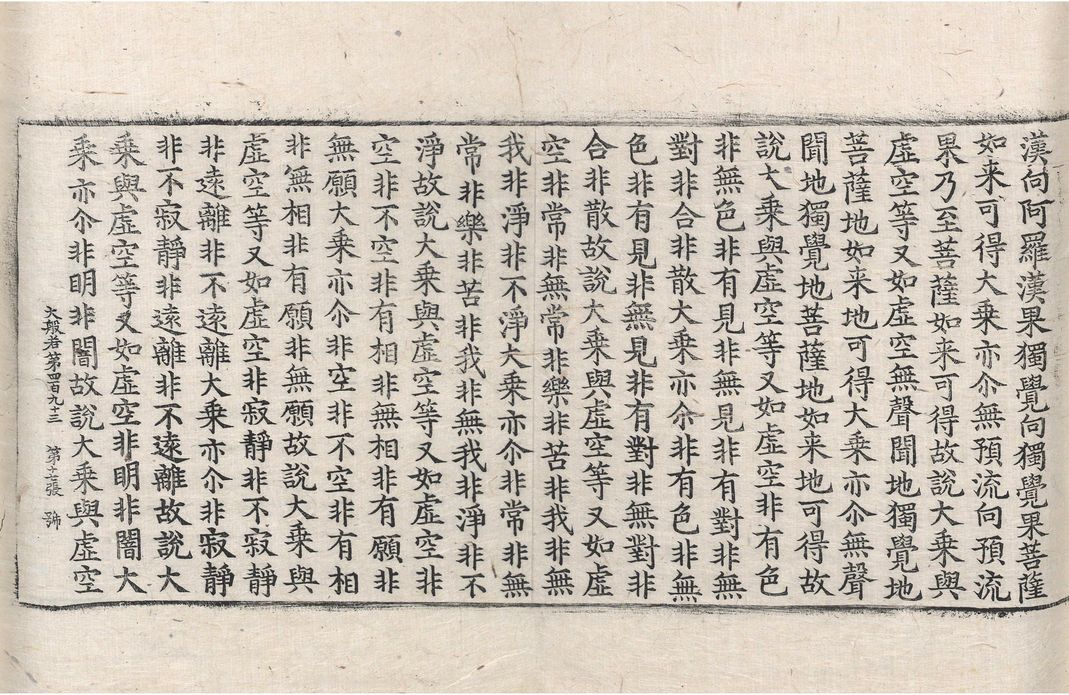 漢向阿羅漢果獨覺向獨覺果菩薩
如来可得大乗亦尒無預流向預流
果乃至菩薩如来可得故說大乗與
虛空等又如虛空無聲聞地獨覺地
菩薩地如来地可得大乗亦尒無聲
聞地獨覺地菩薩地如来地可得故
說大乗與虛空等又如虛空非有色
非無色非有見非無見非有對非無
對非合非散大乗亦尒非有色非無
色非有見非無見非有對非無對非
合非散故說大乗與虛空等又如虛
空非常非無常非樂非苦非我非無
我非淨非不淨大乗亦尒非常非無
常非樂非苦非我非無我非淨非不
淨故說大乗與虛空等又如虛空非
空非不空非有相非無相非有願非
無願大乗亦尒非空非不空非有相
非無相非有願非無願故說大乗與
虛空等又如虛空非寂靜非不寂靜
非遠離非不遠離大乗亦尒非寂靜
非不寂靜非遠離非不遠離故說大
乗與虛空等又如虛空非明非闇大
乗亦尒非明非闇故說大乗與虛空
大般若第四百九十三 第十七張 號